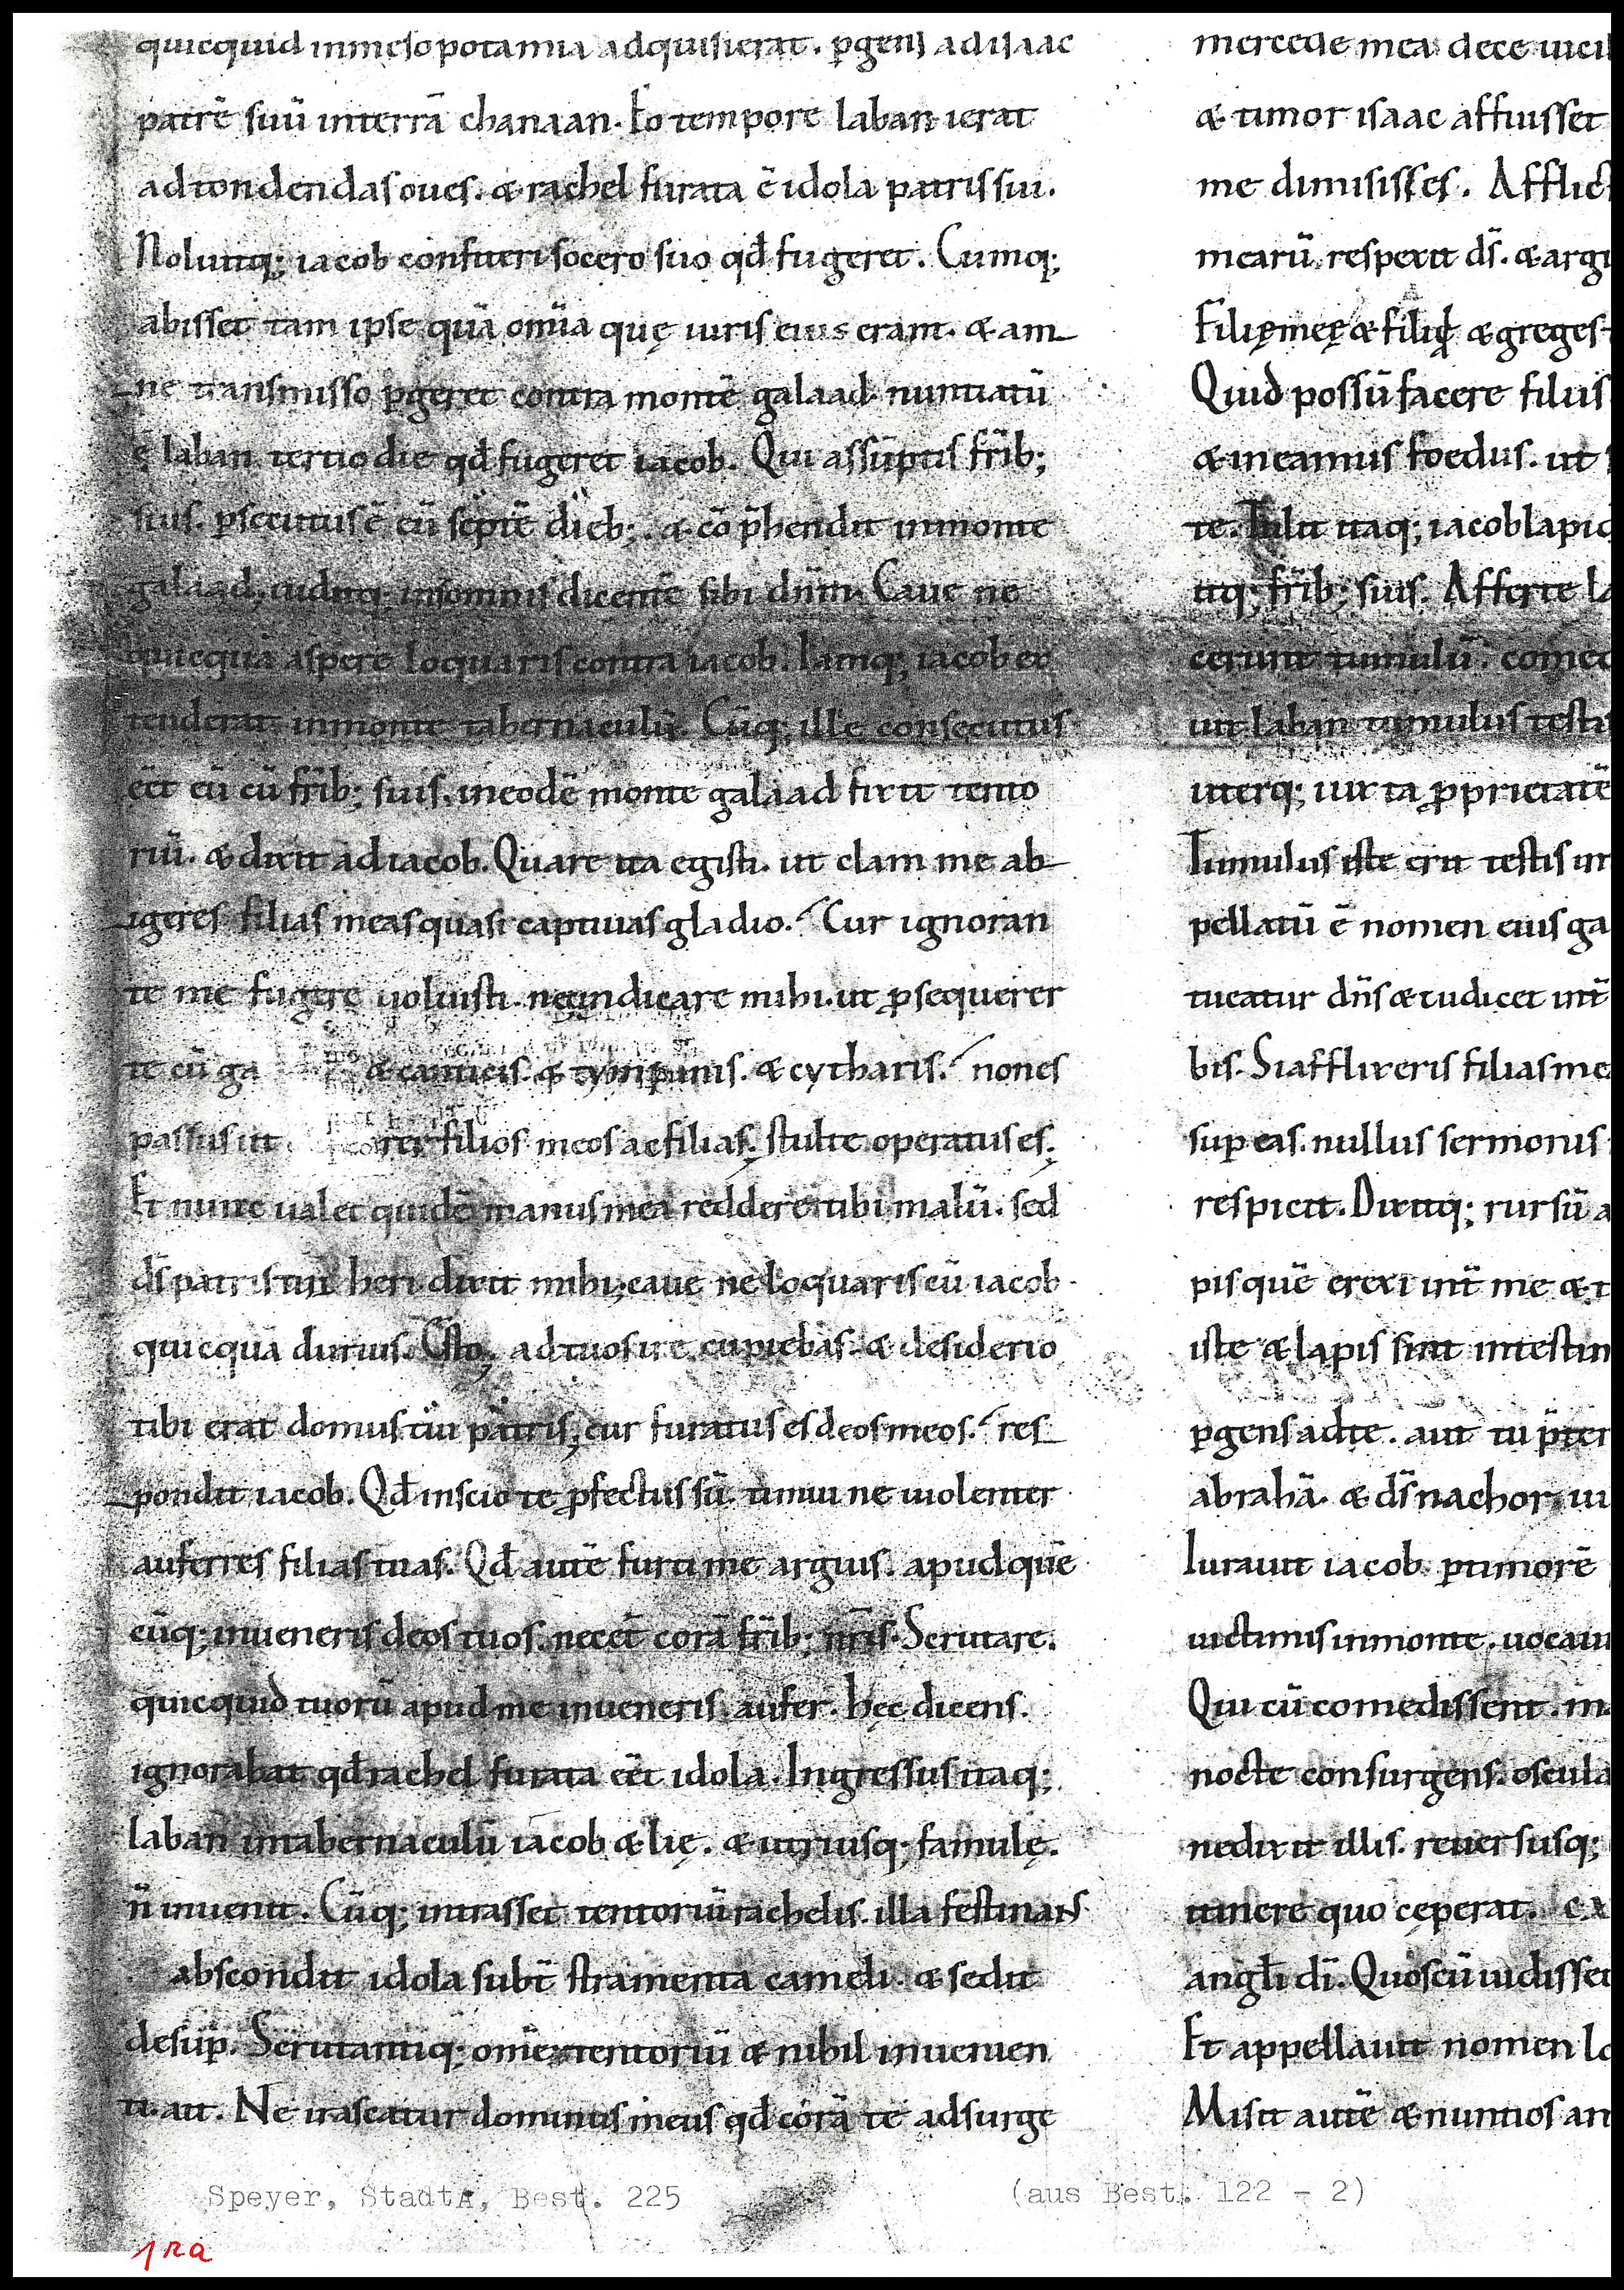 quicquid inmesopotamia adquisierat. ꝑgens adisaac
patrē suū interrā chanaan. Eo tempore laban ierat
adtondendas oues. & rachel furata ē idola patris sui.
Noluitq; iacob confiteri socero suo qđ fugeret. Cumq;
abisset tam ipse quā om̄ia quę iuris eius erant. & am
ne transmisso ꝑgeret contra montē galaad. nuntiatū
ē laban tertio die qđ fugeret iacob. Qui assūptis fr̄ib;
suis. ꝑsecutus ē eū septē dieb;. & cōp̄hendit inmonte
galaad. uiditq; insomnis dicentē sibi dn̄m. Caue ne
quicquā aspere loquaris contra iacob. Iamq; iacob ex
tenderat inmonte tabernaculū. Cūq; ille consecutus
eēt eū cū fr̄ib; suis. ineodē monte galaad fixit tento
riū. & dixit adiacob. Quare ita egisti. ut clam me ab
igeres filias meas quasi captiuas gladio. Cur ignoran
te me fugere uoluisti. nec indicare mihi. ut ꝓsequerer
te cū ga & canticis. & tympanis. & cytharis. nones
passus ut rer filios meos ac filias. stulte operatus es.
Et nunc ualet quidē manus mea reddere tibi malū. sed
ds̄ patris tui heri dixit mihi; caue ne loquaris cū iacob.
quicquā durius. Esto, adtuos ire cupiebas. & desiderio
tibi erat domus tui patris; cur furatus es deos meos. res
pondit iacob. Qđ inscio te ꝓfectus sū. timui ne uiolenter
auferres filias tuas. Qđ autē furti me arguis. apud quē
cūq; inueneris deos tuos. necet̄ corā fr̄ib; nr̄is. Scrutare.
quicquid tuorū apud me inueneris. aufer. hęc dicens.
ignorabat qđ rachel furata eēt idola. Ingressus itaq;
laban intabernaculū iacob & lię. & utriusq; famulę.
n̄ inuenit. Cūq; intrasset tentoriū rachelis. illa festinans
abscondit idola subt̄ stramenta cameli. & sedit
desuꝑ. Scrutantiq; om̄e tentoriū & nihil inuenien
ti. ait. Ne irascatur dominus meus qđ corā te adsurge
mercede mea dece uici
& timor isaac affuisset
me dimisisses. Afflic
mearū respexit ds̄. & argu
Filię meę & filii & greges
Quid possū facere filiis
& ineamus foedus. ut
te. Tulit itaq; iacob lapid
itq; fr̄ib; suis. Afferte la
cerunt tumulū. comed
uit laban tumulus testis
uterq; iuxta ꝓprietatē
Tumulus iste erit testis in
pellatū ē nomen eius ga
tueatur dn̄s & iudicet int̄
bis. Si afflixeris filias me
suꝑ eas. nullus sermonis
respicit. Dixitq; rursū a
pis quē erexi int̄ me & t
iste & lapis sint intestim
ꝑgens adte. aut tu p̄ter
abrahā. & ds̄ nachor. iu
Iurauit iacob ꝑ timorē
uictimis inmonte. uocauit
Qui cū comedissent. m
nocte consurgens. oscula
nedixit illis. reuersusq;
itinere quo cęperat.
angl̄i dī. Quos cū uidisset
Et appellauit nomen lo
Misit autē & nuntios an
Speyer, StadtA, Best. 225 (aus Best. 122 - 2)
1ra